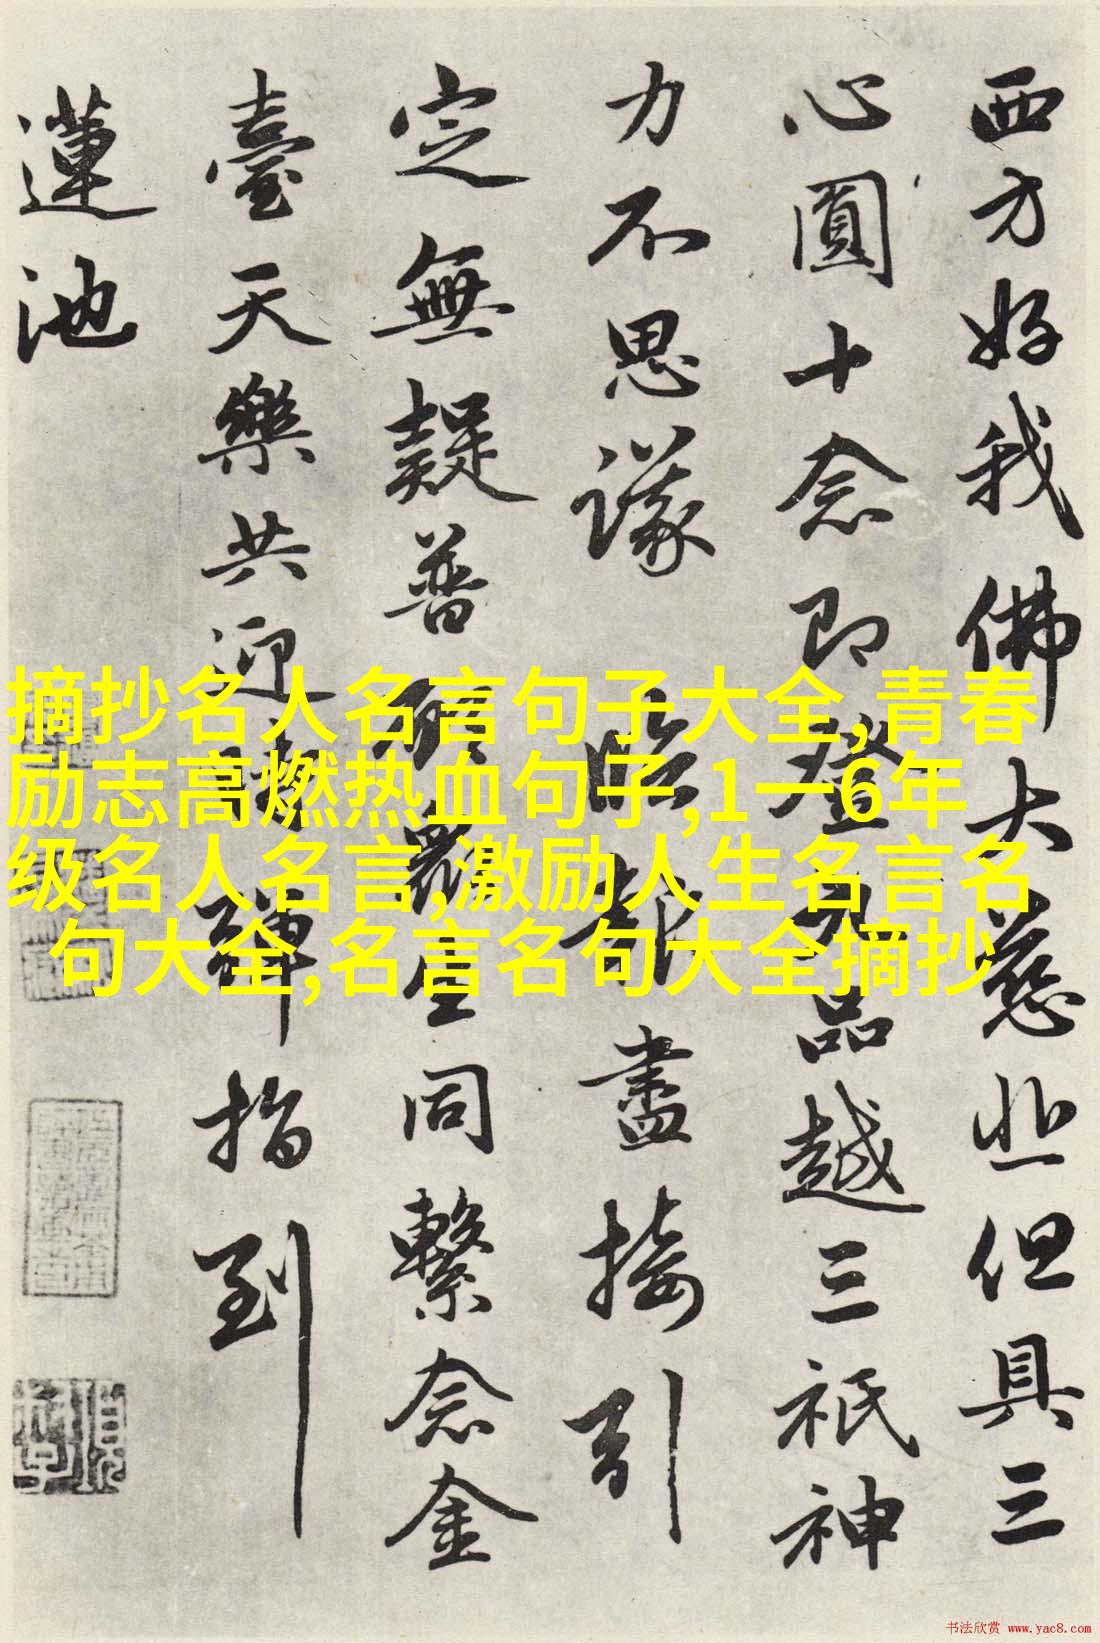 西方好我佛大慈悲但具三
心圓十念即登九品越三祇神
力不思議臨報盡接引
定無疑普願眾生同繫念金
臺天樂共迎請彈指到
蓮池
摘抄名人名言句子大全,青春
励志高燃热血句子,1一6年
级名人名言,激励人生名言名
句大全,名言名句大全摘抄
书法欣赏 www.yac8.com